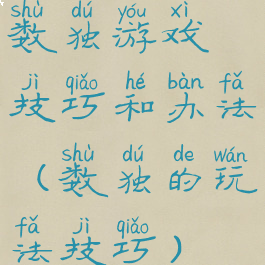 shù dú yóu xì
数独游戏
jì qiǎo hé bàn fǎ
技巧和办法
shù dú de wán
(数独的玩
fǎ jì qiǎo
法技巧)